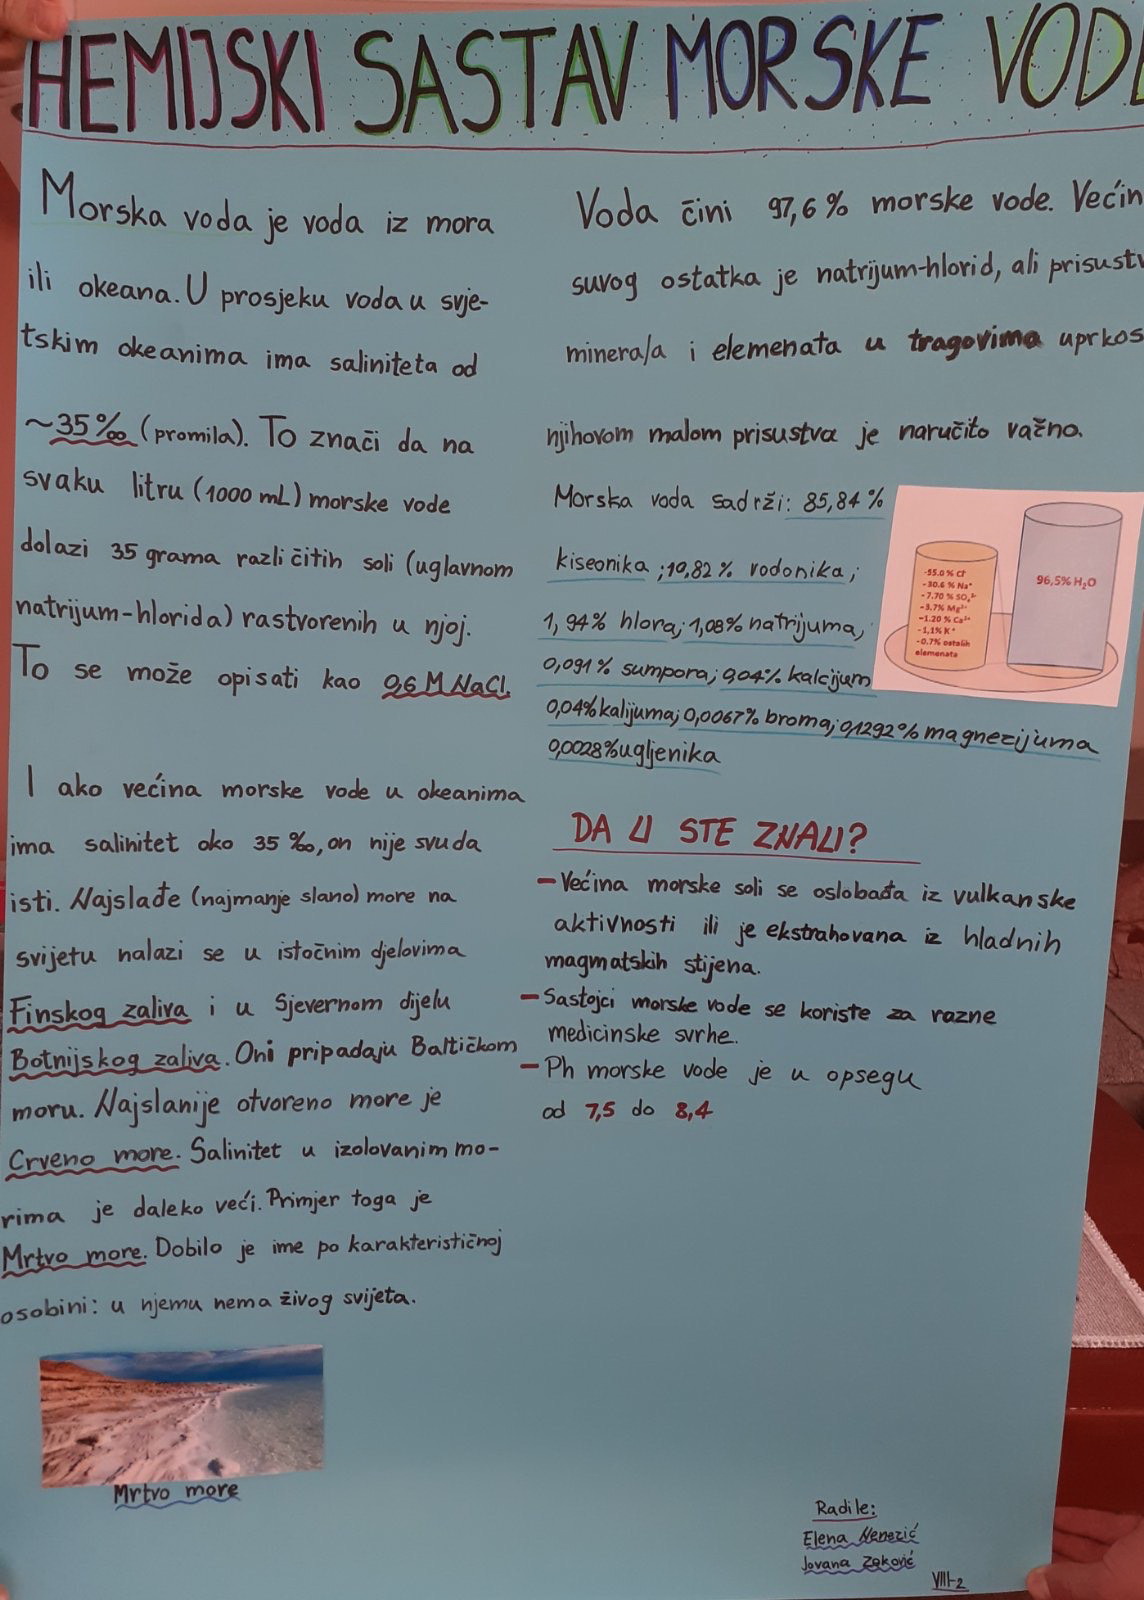 HEMIJSKI SASTAV MORSKE VODE
Morska voda je voda iz mora
ili okeana. U prosjeku voda u svje-
tskim okeanima ima saliniteta od
~35‰ (promila). To znači da na
svaku litru (1000 mL) morske vode
dolazi 35 grama različitih soli (uglavnom
natrijum-hlorida) rastvorenih u njoj.
To se može opisati kao 0,6 M NaCl.
I ako većina morske vode u okeanima
ima salinitet oko 35 ‰, on nije svuda
isti. Najslađe (najmanje slano) more na
svijetu nalazi se u istočnim djelovima
Finskog zaliva i u Sjevernom dijelu
Botnijskog zaliva. Oni pripadaju Baltičkom
moru. Najslanije otvoreno more je
Crveno more. Salinitet u izolovanim mo-
rima je daleko veći. Primjer toga je
Mrtvo more. Dobilo je ime po karakterističnoj
osobini: u njemu nema živog svijeta.
Mrtvo more
Voda čini 97,6% morske vode. Većin
suvog ostatka je natrijum-hlorid, ali prisustv
minerala i elemenata u tragovima uprkos
njihovom malom prisustva je naručito važno.
Morska voda sadrži: 85,84%
kiseonika; 10,82% vodonika;
1,94% hlora; 1,08% natrijuma,
0,091% sumpora; 0,04% kalcijum
0,04% kalijuma; 0,0067% broma; 0,1292% magnezijuma
0,0028% ugljenika
-55.0 % Cl⁻
-30.6 % Na⁺
-7.70 % SO₄²⁻
-3.7% Mg²⁺
-1.20 % Ca²⁺
-1,1% K⁺
-0.7% ostalih
elemenata
96,5% H₂O
DA LI STE ZNALI?
- Većina morske soli se oslobađa iz vulkanske
aktivnosti ili je ekstrahovana iz hladnih
magmatskih stijena.
- Sastojci morske vode se koriste za razne
medicinske svrhe.
- Ph morske vode je u opsegu
od 7,5 do 8,4
Radile:
Elena Nenezić
Jovana Zeković
VIII-2